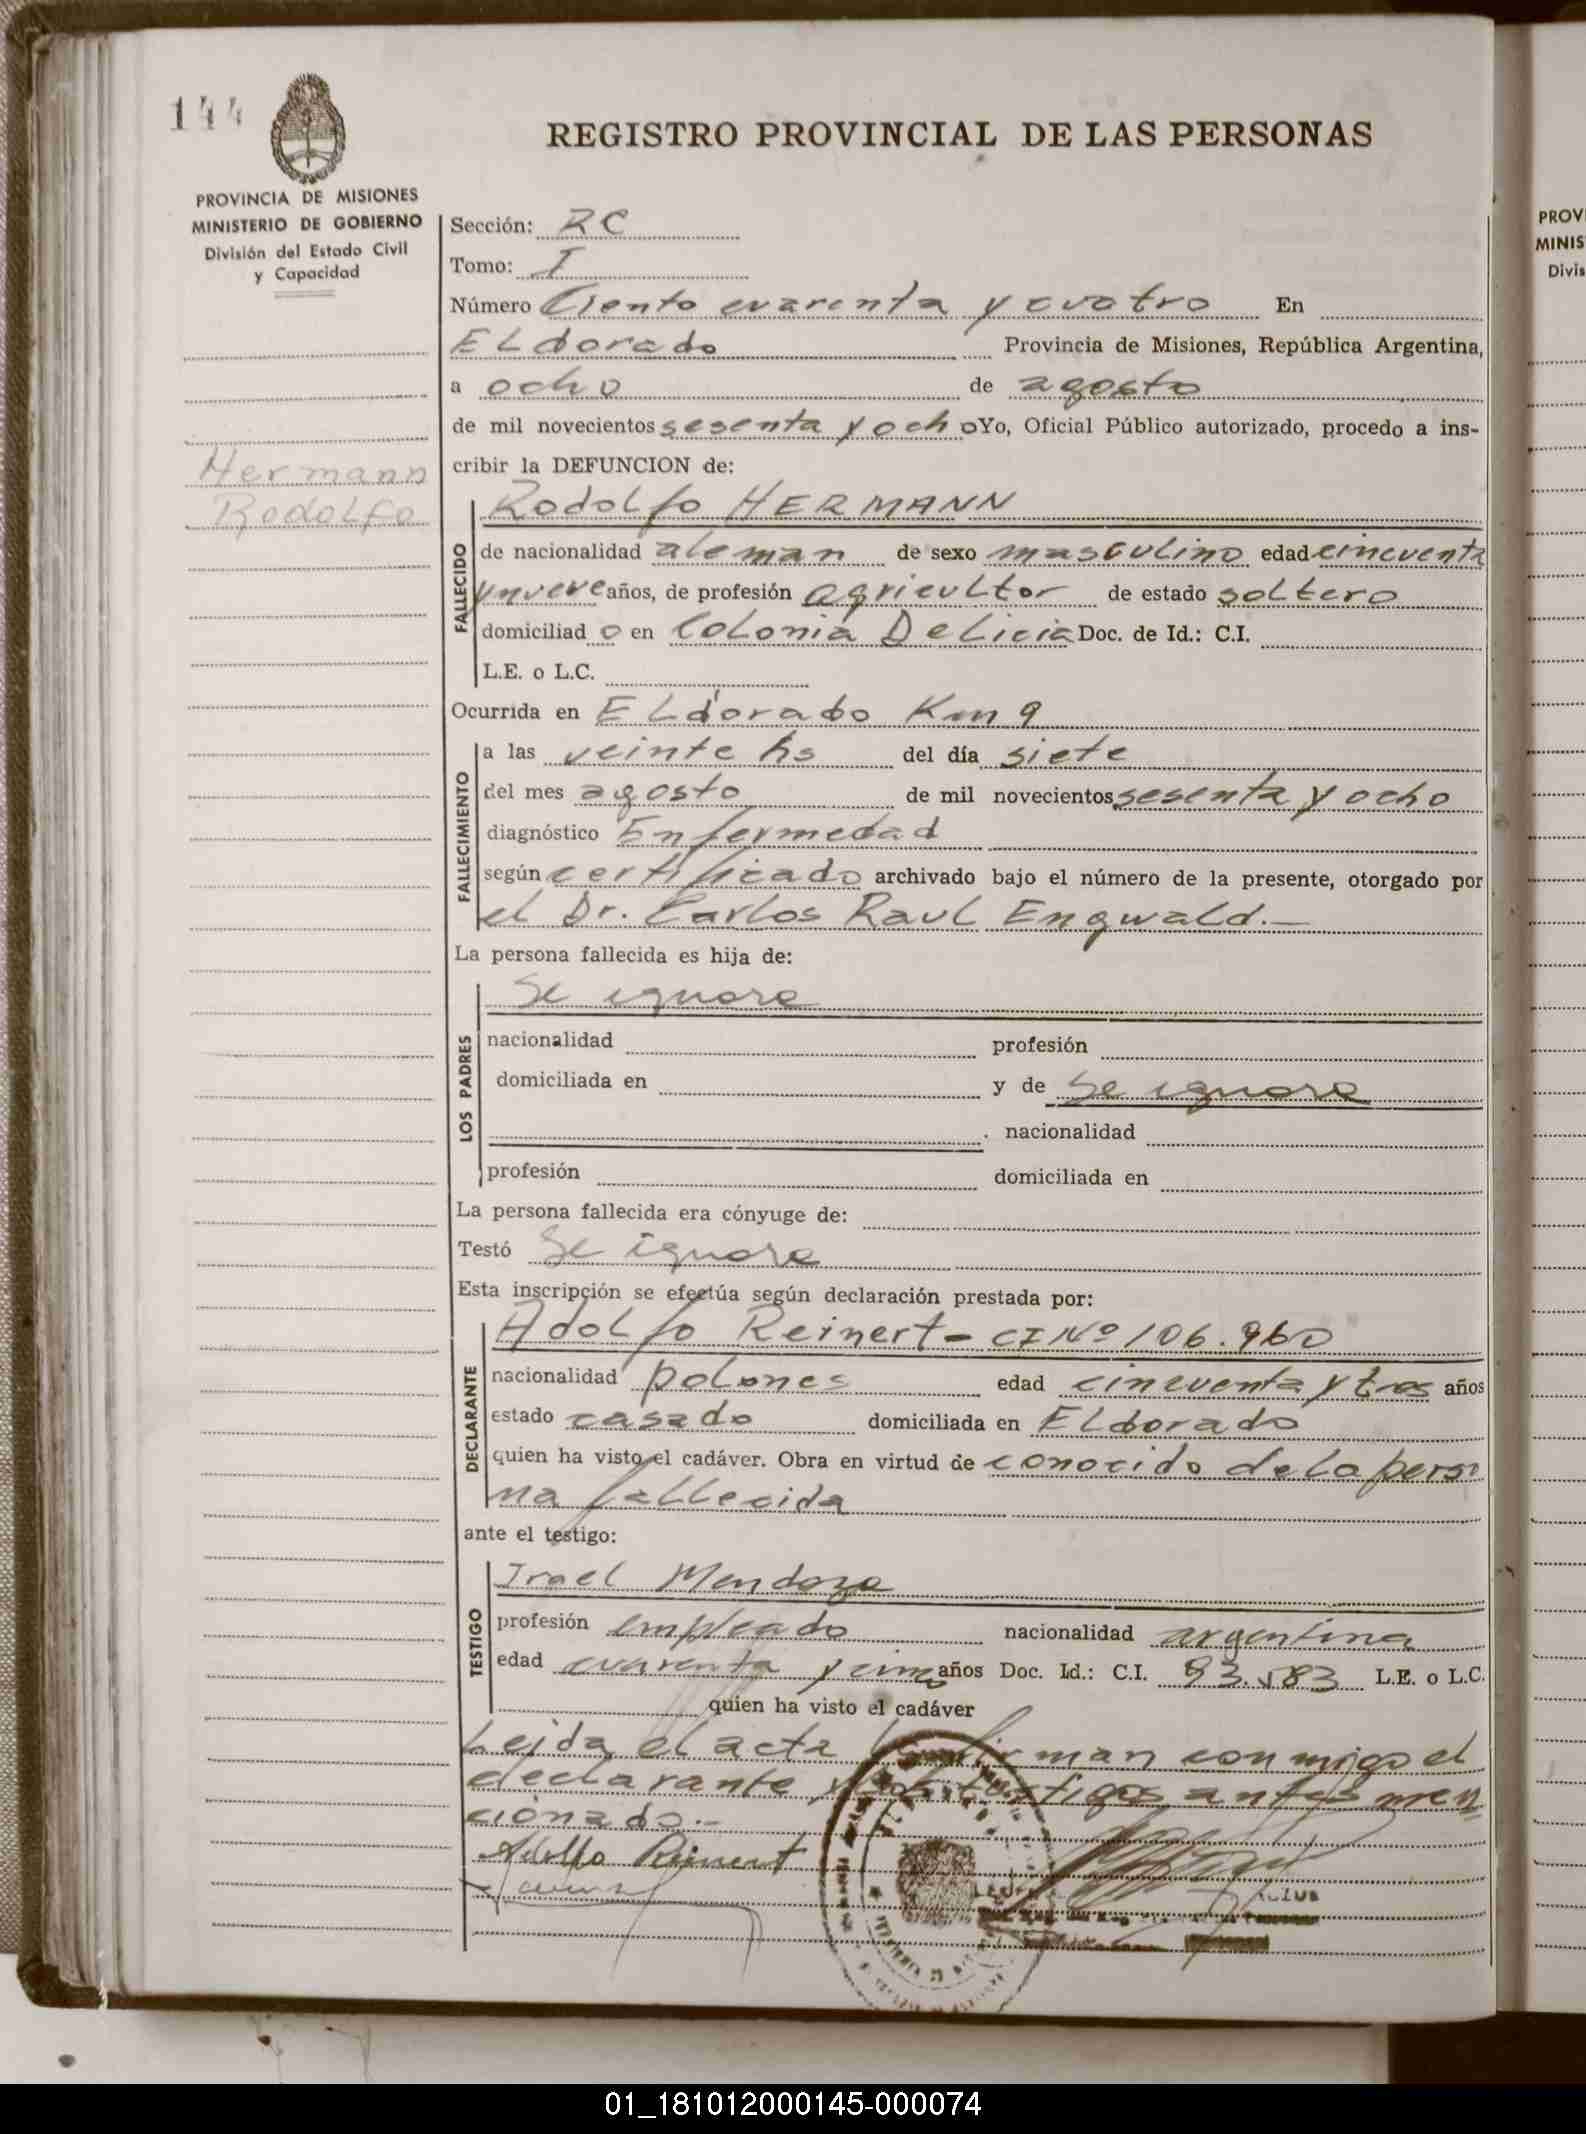 144
REGISTRO PROVINCIAL DE LAS PERSONAS
PROVINCIA DE MISIONES
MINISTERIO DE GOBIERNO
División del Estado Civil
y Capacidad
Hermann
Rodolfo
Sección: RC
Tomo: I
Número Ciento cuarenta y cuatro En
ELdorado Provincia de Misiones, República Argentina,
a ocho de agosto
de mil novecientos sesenta y ocho Yo, Oficial Público autorizado, procedo a ins-
cribir la DEFUNCION de:
FALLECIDO
Rodolfo HERMANN
de nacionalidad aleman de sexo masculino edad cincuenta
y nueve años, de profesión agricultor de estado soltero
domiciliad o en Colonia Delicia Doc. de Id.: C.I.
L.E. o L.C.
Ocurrida en ELdorado Km 9
FALLECIMIENTO
a las veinte hs del día siete
del mes agosto de mil novecientos sesenta y ocho
diagnóstico Enfermedad
según certificado archivado bajo el número de la presente, otorgado por
el Dr. Carlos Raul Engwald.-
La persona fallecida es hija de:
LOS PADRES
Se ignora
nacionalidad profesión
domiciliada en y de Se ignora
nacionalidad
profesión domiciliada en
La persona fallecida era cónyuge de:
Testó Se ignora
Esta inscripción se efectúa según declaración prestada por:
DECLARANTE
Adolfo Reinert - CI Nº 106.960
nacionalidad polones edad cincuenta y tres años
estado casado domiciliada en ELdorado
quien ha visto el cadáver. Obra en virtud de conocido de la perso
na fallecida
ante el testigo:
TESTIGO
Irael Mendoza
profesión empleado nacionalidad argentina
edad cuarenta y cinco años Doc. Id.: C.I. L.E. o L.C.
quien ha visto el cadáver
Leida el acta la firman conmigo el
declarante y testigos antes men
cionado.-
Adolfo Reinert
PROV
MINIS
Divis
01_181012000145-000074